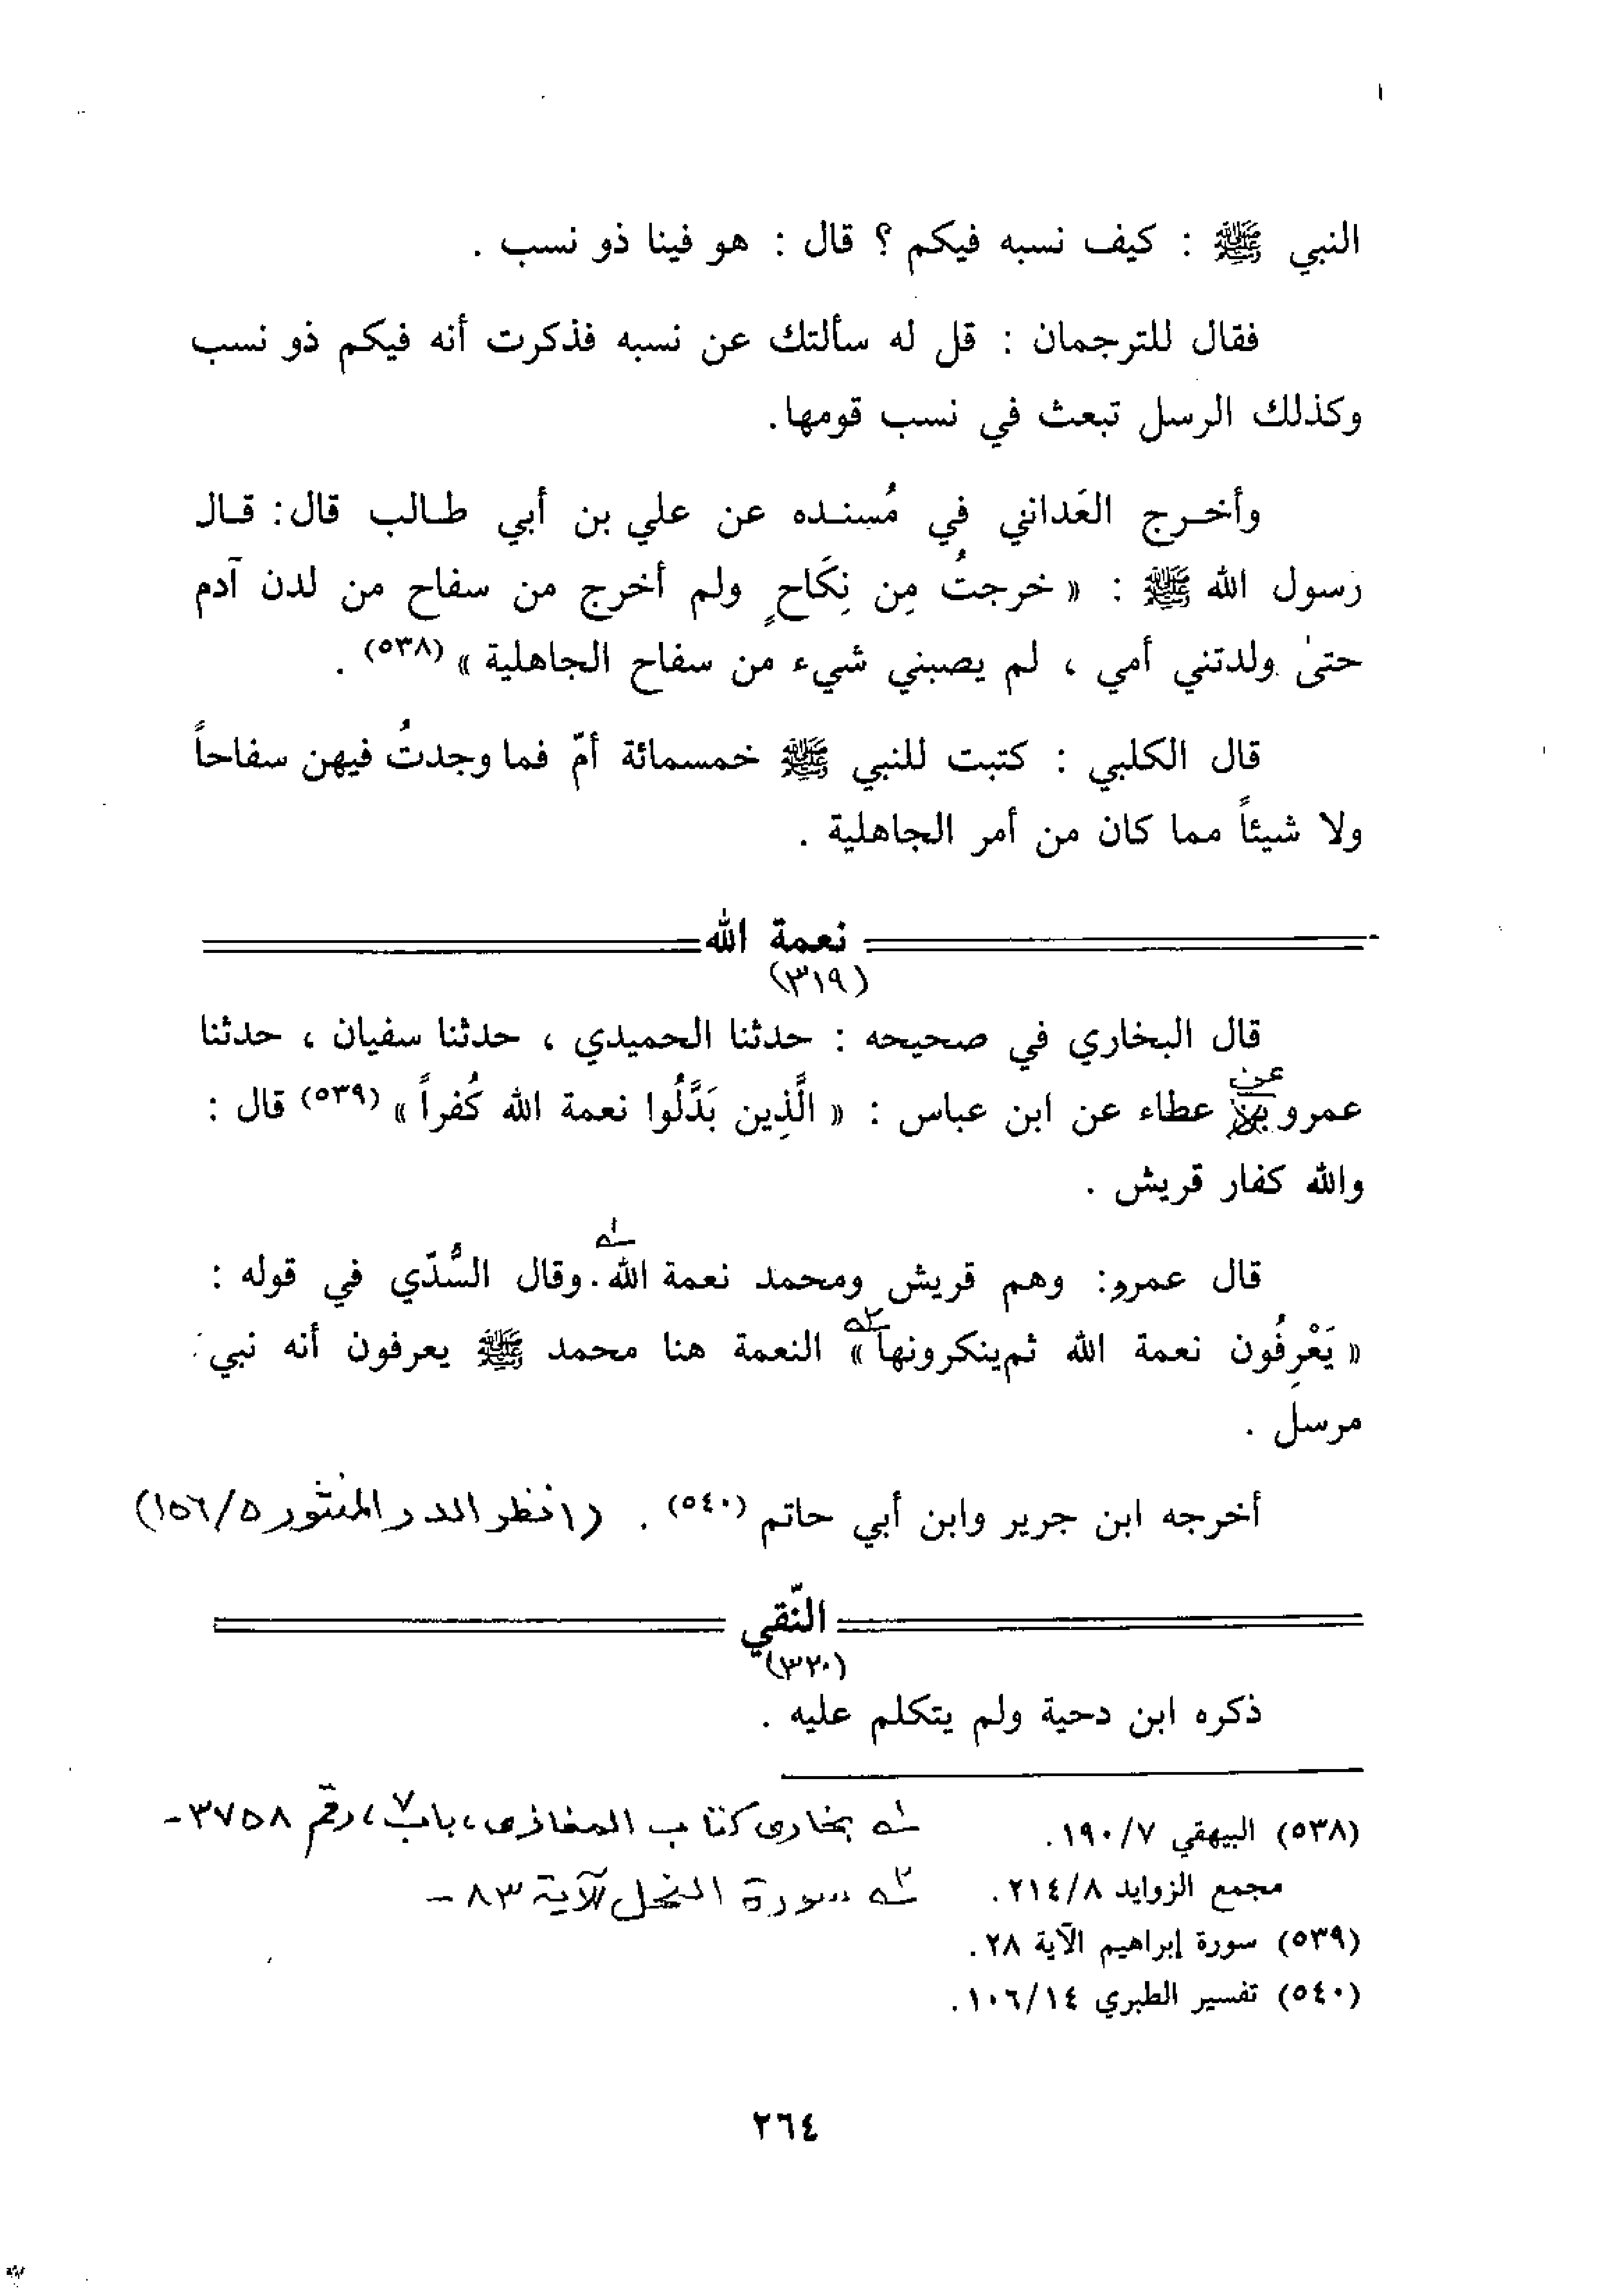 النبي ﷺ : كيف نسبه فيكم ؟ قال : هو فينا ذو نسب .
فقال للترجمان : قل له سألتك عن نسبه فذكرت أنه فيكم ذو نسب
وكذلك الرسل تبعث في نسب قومها.
وأخرج العَداني في مُسنده عن علي بن أبي طالب قال: قال
رسول الله ﷺ : « خرجتُ مِن نِكَاحٍ ولم أخرج من سفاح من لدن آدم
حتىٰ ولدتني أمي ، لم يصبني شيء من سفاح الجاهلية » (٥٣٨) .
قال الكلبي : كتبت للنبي ﷺ خمسمائة أمّ فما وجدتُ فيهن سفاحاً
ولا شيئاً مما كان من أمر الجاهلية .
نعمة الله
(٣١٩)
قال البخاري في صحيحه : حدثنا الحميدي ، حدثنا سفيان ، حدثنا
عن
عمرو بن عطاء عن ابن عباس : « الَّذِين بَدَّلُوا نعمة الله كُفراً » (٥٣٩) قال :
والله كفار قريش .
قال عمرو: وهم قريش ومحمد نعمة الله١ . وقال السُّدّي في قوله :
« يَعْرِفُون نعمة الله ثم ينكرونها٢ » النعمة هنا محمد ﷺ يعرفون أنه نبي
مرسل .
أخرجه ابن جرير وابن أبي حاتم (٥٤٠) . (انظر الدر المنثور ٥/١٥٦)
النّقي
(٣٢٠)
ذكره ابن دحية ولم يتكلم عليه .
(٥٣٨) البيهقي ٧/١٩٠.
مجمع الزوايد ٨/٢١٤.
(٥٣٩) سورة إبراهيم الآية ٢٨.
(٥٤٠) تفسير الطبري ١٤/١٠٦.
١ بخاری کتاب المغازی، باب ٧، رقم ٣٧٥٨-
٢ سورة النحل الآية ٨٣-
٢٦٤